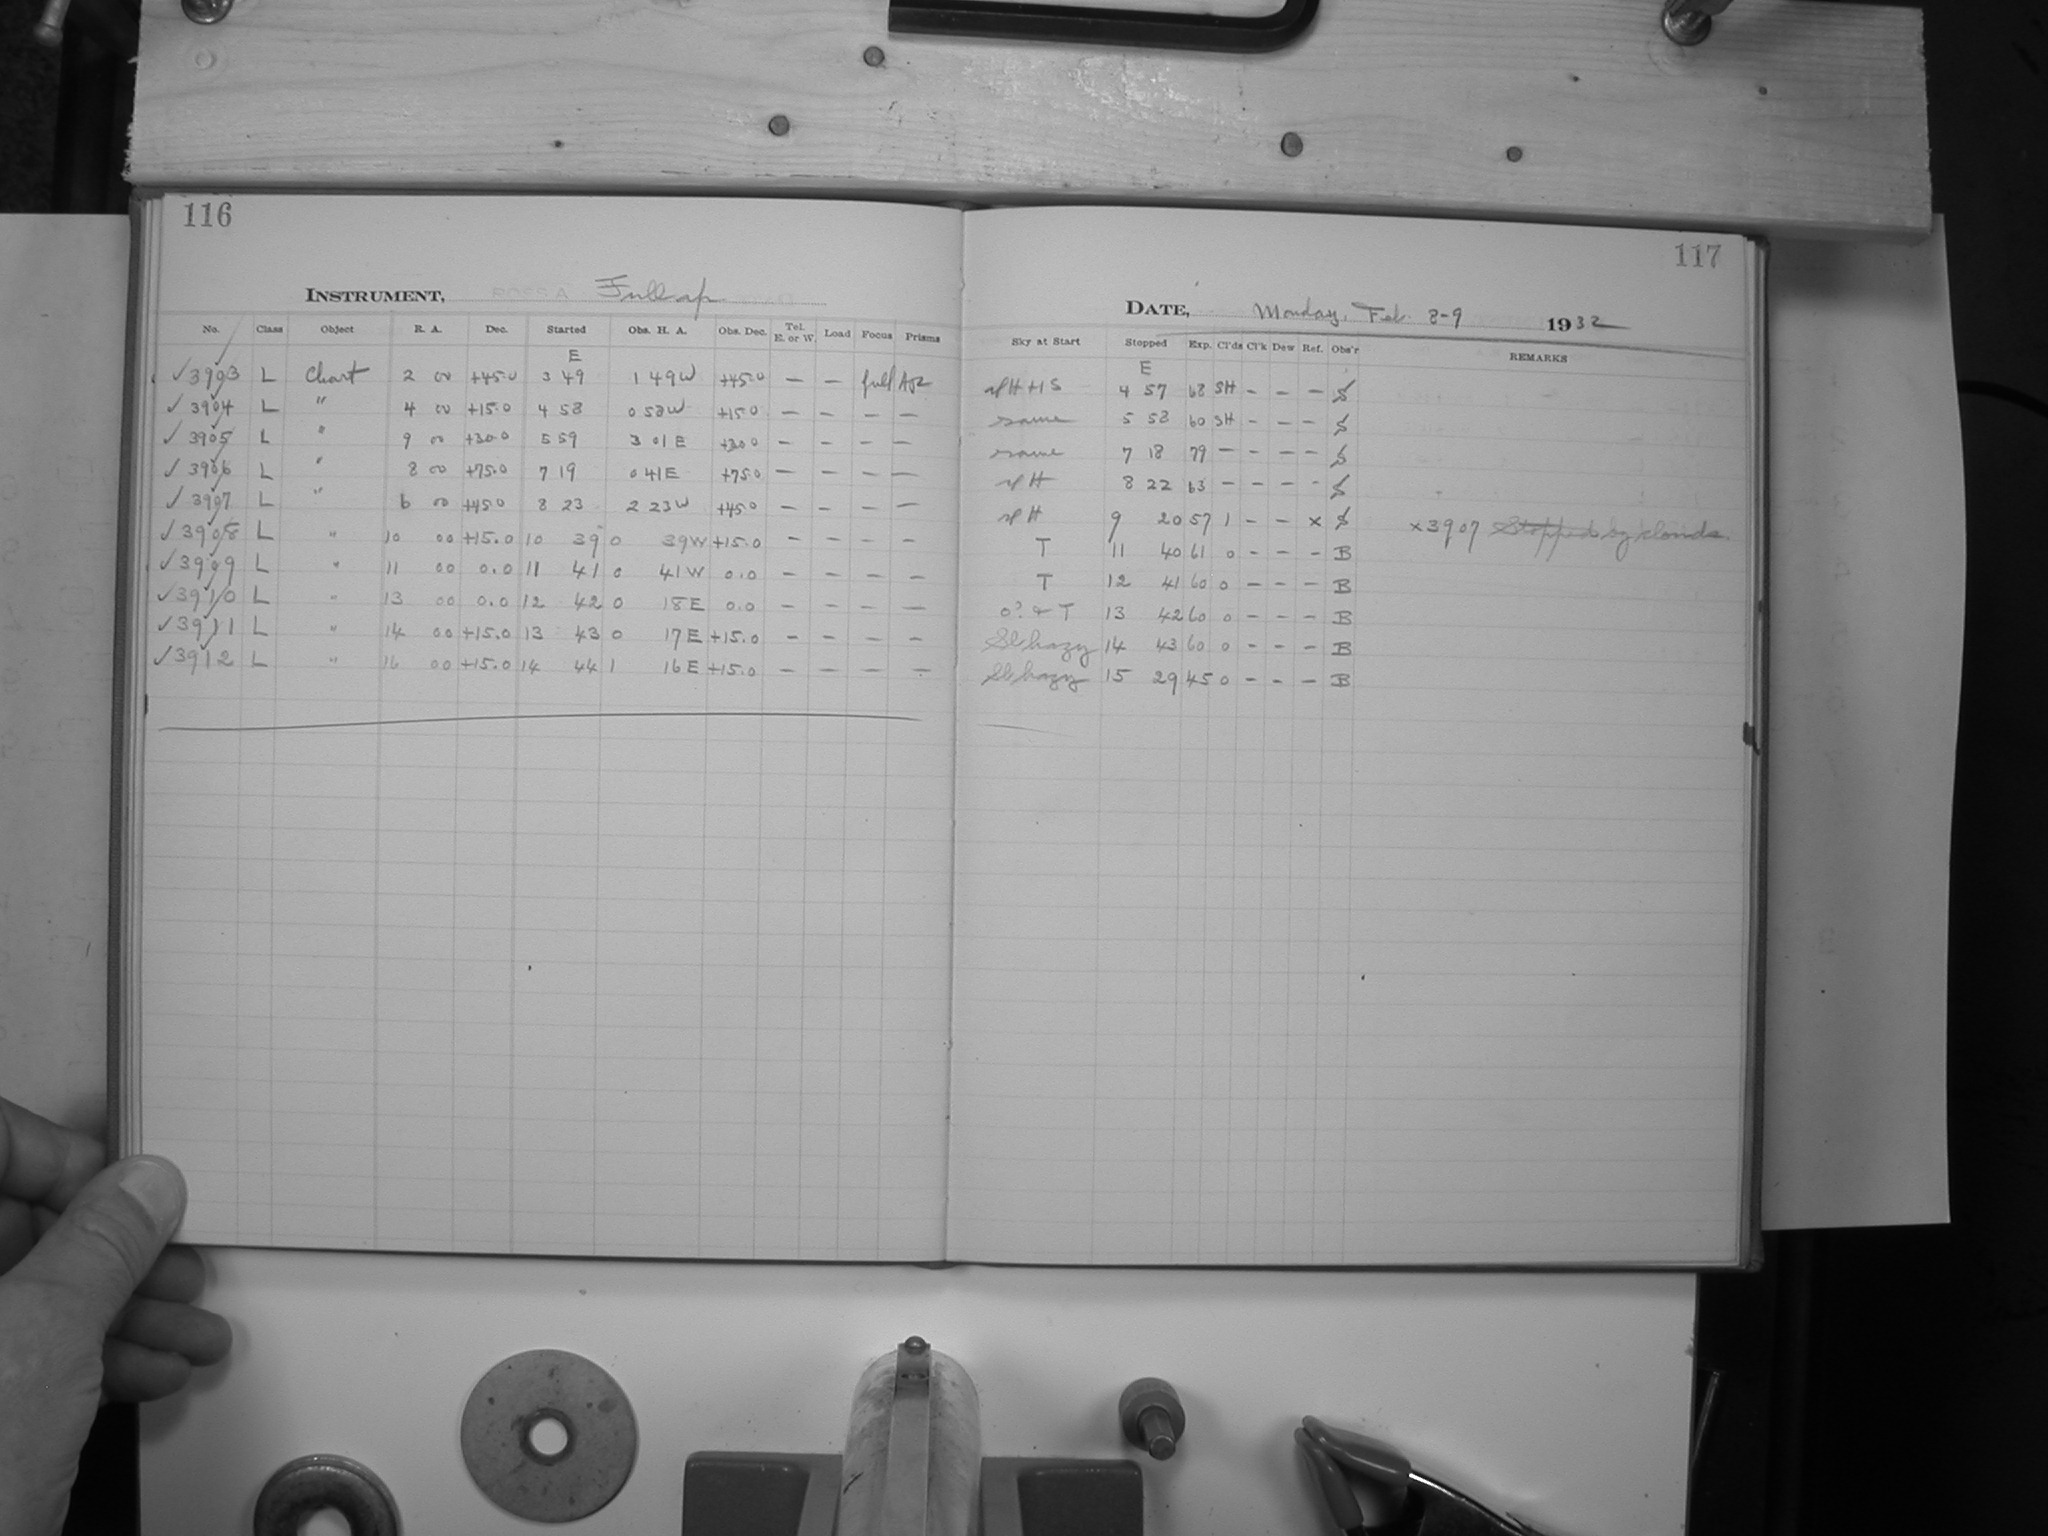 116
INSTRUMENT, Full ap.
No. Class Object R. A. Dec. Started Obs. H. A. Obs. Dec. Tel. E. or W. Load Focus Prisms
E
✓ 3903 L Chart 2 00 +45.0 3 49 1 49 W +45.0 — — full
✓ 3904 L " 4 00 +15.0 4 58 0 58 W +15.0 — — — —
✓ 3905 L " 9 00 +30.0 5 59 3 01 E +30.0 — — — —
✓ 3906 L " 8 00 +75.0 7 19 0 41 E +75.0 — — — —
✓ 3907 L " 6 00 +45.0 8 23 2 23 W +45.0 — — — —
✓ 3908 L " 10 00 +15.0 10 39 0 39 W +15.0 — — — —
✓ 3909 L " 11 00 0.0 11 41 0 41 W 0.0 — — — —
✓ 3910 L " 13 00 0.0 12 42 0 18 E 0.0 — — — —
✓ 3911 L " 14 00 +15.0 13 43 0 17 E +15.0 — — — —
✓ 3912 L " 16 00 +15.0 14 44 1 16 E +15.0 — — — —
117
DATE, Monday, Feb. 8-9 1932
Sky at Start Stopped Exp. Cl'ds Cl'k Dew Ref. Obs'r REMARKS
E
4 57 68 SH - - - S
same 5 58 60 SH - - - S
same 7 18 79 - - - - S
spH 8 22 63 - - - - S
spH 9 20 57 1 - - x S x 3907 Stopped by clouds.
T 11 40 61 0 - - - B
T 12 41 60 0 - - - B
0? & T 13 42 60 0 - - - B
Sl hazy 14 43 60 0 - - - B
Sl hazy 15 29 45 0 - - - B